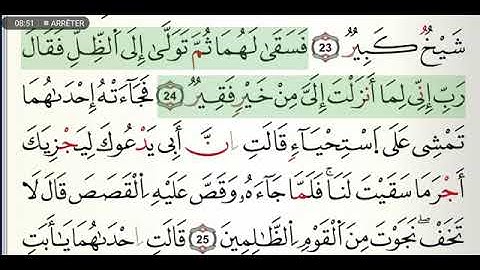 08:51 ■ ARRÊTER
شَيْخٌ كَبِيرٌ 23 فَسَقَىٰ لَهُمَا ثُمَّ تَوَلَّىٰ إِلَى اَ۬لظِّلِّ فَقَالَ
رَبِّ إِنِّي لِمَا أَنزَلْتَ إِلَيَّ مِنْ خَيْرٖ فَقِيرٌ 24 فَجَآءَتْهُ إِحْدَىٰهُمَا
تَمْشِي عَلَى اَ۪سْتِحْيَآءٖ قَالَتِ اِنَّ أَبِي يَدْعُوكَ لِيَجْزِيَكَ
أَجْرَ مَا سَقَيْتَ لَنَا فَلَمَّا جَآءَهُۥ وَقَصَّ عَلَيْهِ اِ۬لْقَصَصَ قَالَ لَا
تَخَفْ نَجَوْتَ مِنَ اَ۬لْقَوْمِ اِ۬لظَّٰلِمِينَ 25 قَالَتِ اِحْدَىٰهُمَا يَٰٓأَبَتِ